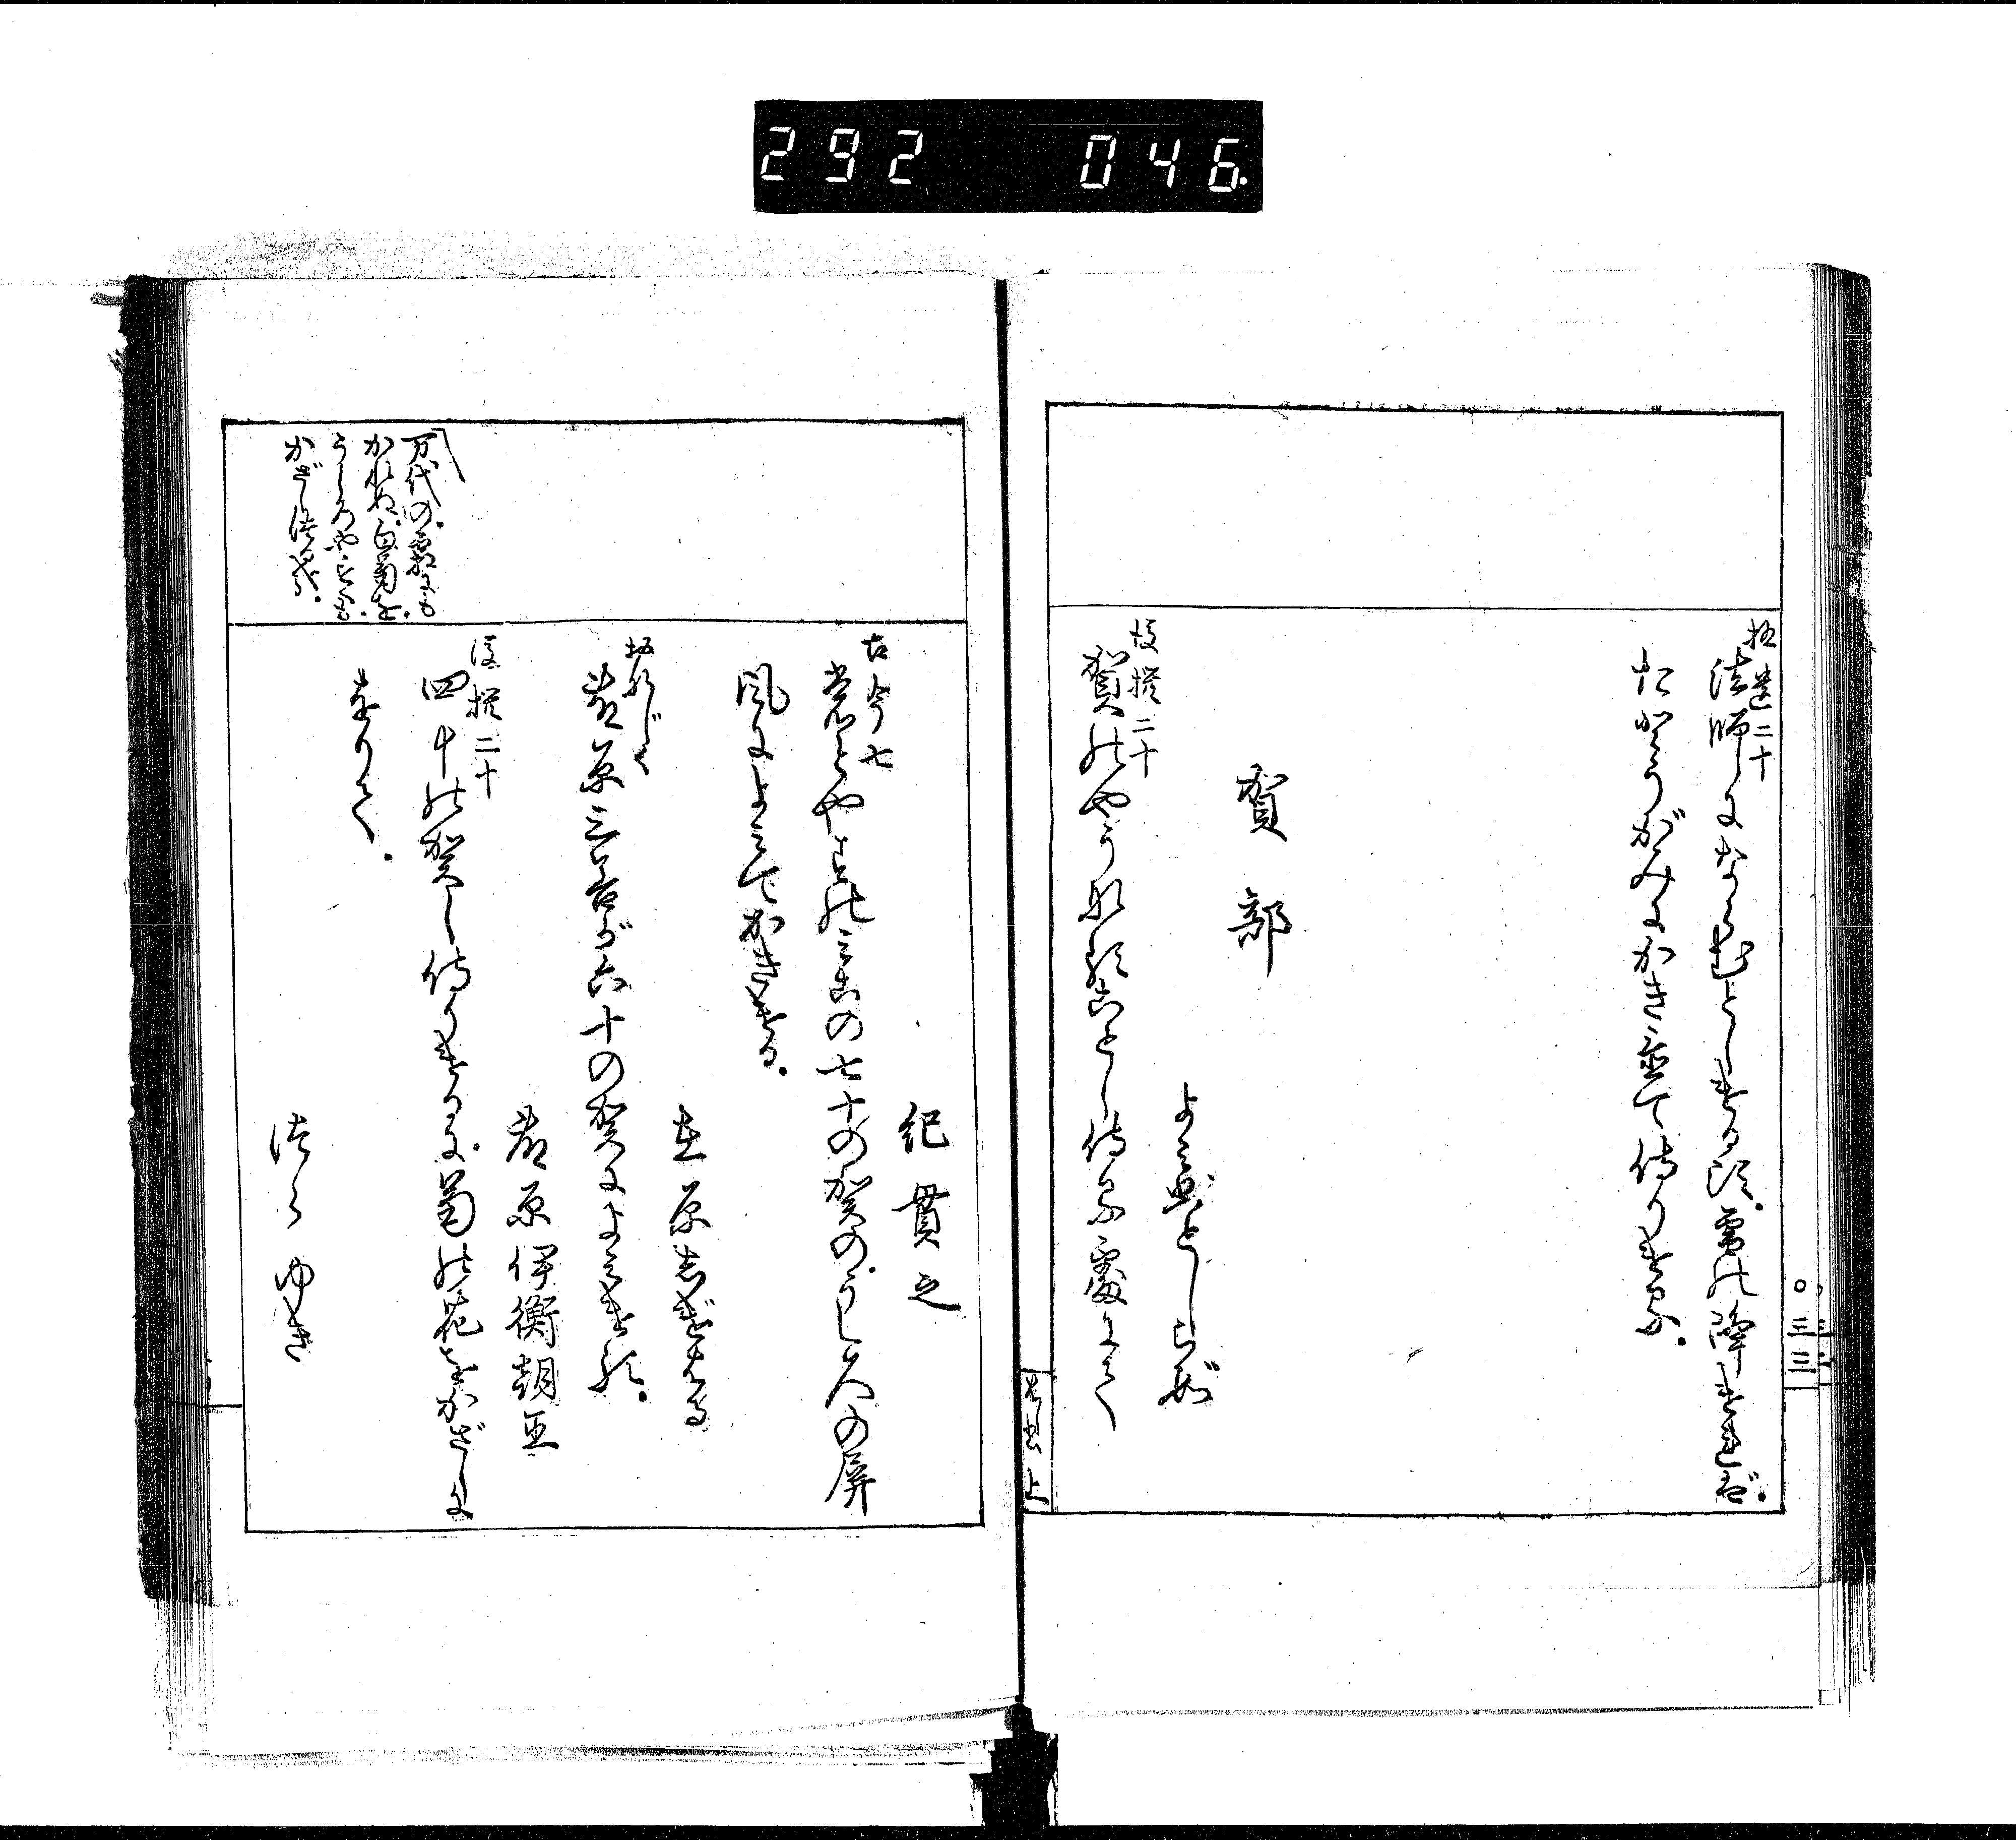 292 046
拾遺二十
法師にならむとしける頃。雪の降ければ。
たゝうがみにかき置て侍りける。
賀部
後撰二十
よみ人しらず
賀のやうなることし侍る處にて
〇三三
上
紀貫之
古今七
もとやすのみこの七十の賀の。うしろの屏
風によみてかきける。
在原しげはる
おなじく
藤原三善が六十の賀によみける。
藤原伊衡朝臣
後撰二十
四十の賀し侍りけるに。菊の花をかざしに
をりて。
つらゆき
万代の。霜にも
かれぬ。白菊を。
うしろやすくも。
かざしつるかな。